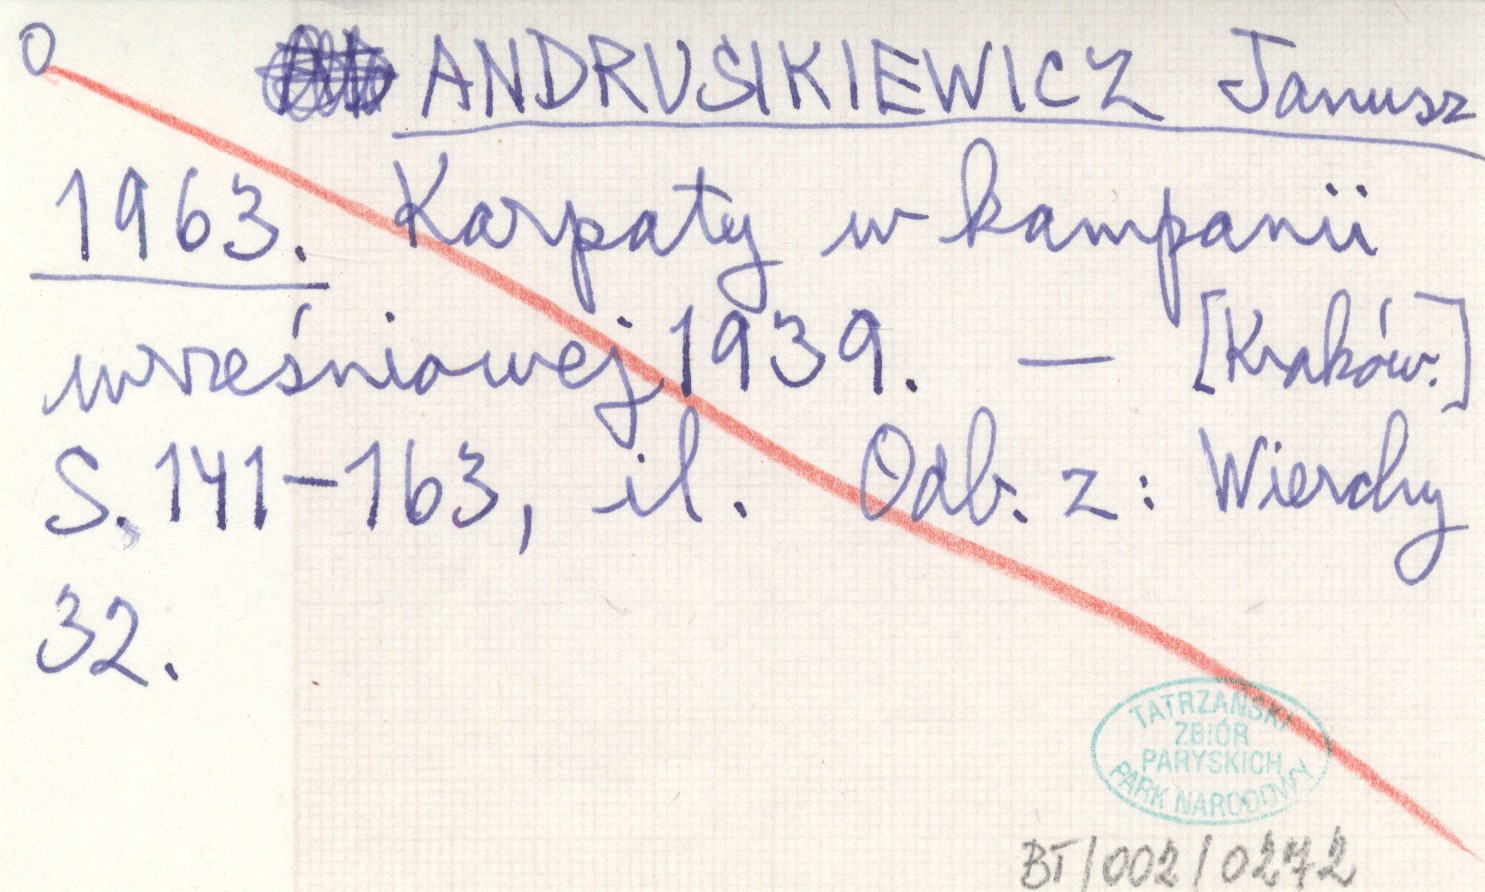 O ANDRUSIKIEWICZ Janusz
1963. Karpaty w kampanii
wrześniowej 1939. — [Kraków.]
S. 141–163, il. Odb. z: Wierchy
32.
TATRZAŃSKI
ZBIÓR
PARYSKICH
PARK NARODOWY
BT/002/0272